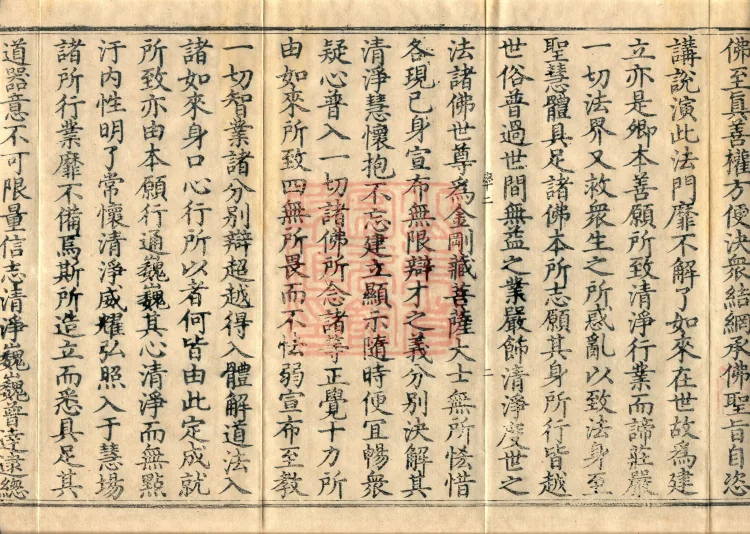 佛至真善權方便決衆結網承佛聖旨自恣
講說演此法門靡不解了如來在世故為建
立亦是卿本善願所致清淨行業而諦莊嚴
一切法界又救衆生之所惑亂以致法身至
聖慧體具足諸佛本所志願其身所行皆越
世俗普過世間無益之業嚴飾清淨度世之
學二 二
法諸佛世尊為金剛藏菩薩大士無所恡惜
各現已身宣布無限辯才之義分別決解其
清淨慧懷抱不忘建立顯示隨時便宜暢衆
疑心普入一切諸佛所念諸等正覺十方所
由如來所致四無所畏而不怯弱宣布至教
一切智業諸分別辯超越得入體解道法入
諸如來身口心行所以者何皆由此定成就
所致亦由本願行通巍巍其心清淨而無點
汙內性明了常懷清淨威耀弘照入于慧場
諸所行業靡不備焉斯所造立而悉具足其
道器意不可限量信志清淨巍巍普達遠總